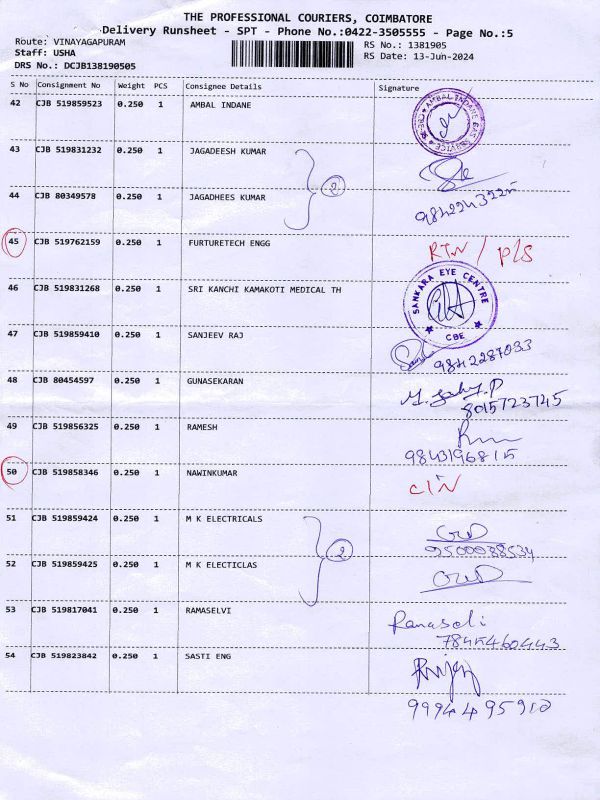 THE PROFESSIONAL COURIERS, COIMBATORE
Delivery Runsheet - SPT - Phone No.:0422-3505555 - Page No.:5
Route: VINAYAGAPURAM RS No.: 1381905
Staff: USHA RS Date: 13-Jun-2024
DRS No.: DCJB138190505
S No Consignment No Weight PCS Consignee Details Signature
42 CJB 519859523 0.250 1 AMBAL INDANE AMBAL INDANE GAS SERVICE
43 CJB 519831232 0.250 1 JAGADEESH KUMAR
2
44 CJB 80349578 0.250 1 JAGADHEES KUMAR 9842243225
45 CJB 519762159 0.250 1 FURTURETECH ENGG RTN / P/S
46 CJB 519831268 0.250 1 SRI KANCHI KAMAKOTI MEDICAL TH SANKARA EYE CENTRE CBE
47 CJB 519859410 0.250 1 SANJEEV RAJ 9842287033
48 CJB 80454597 0.250 1 GUNASEKARAN 8015723745
49 CJB 519856325 0.250 1 RAMESH
9843196815
50 CJB 519858346 0.250 1 NAWINKUMAR C/N
51 CJB 519859424 0.250 1 M K ELECTRICALS
2 9500988534
52 CJB 519859425 0.250 1 M K ELECTICLAS
53 CJB 519817041 0.250 1 RAMASELVI Ramaseli
7845460443
54 CJB 519823842 0.250 1 SASTI ENG
9994495910